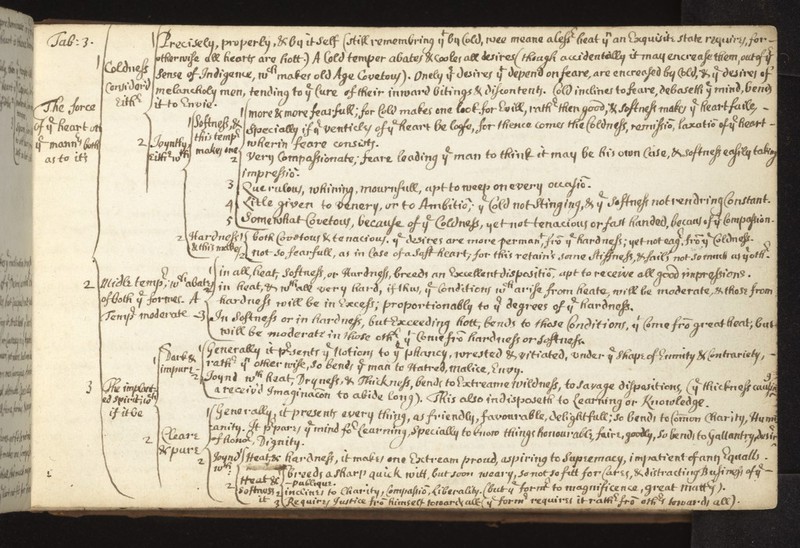 Tab: 3.
The force of yͤ heart oth yͤ mann's body as to it's
1 Coldness consider'd Eithr
1 Precisely, properly, & by it self (still remembring yͭ by Cold, wee meane a less heat yn an Exquisite state requires, for-
otherwise all hearts are hott.) A Cold temper abates & cooles all desires (though accidentally it may encrease them, out of yͤ
sense of Indigence, wch makes old Age Covetous). Onely yͤ desires yͭ depend on feare, are encreased by Cold, & yͤ desires of
melancholy men, tending to yͤ Cure of their inward bitings & discontents. Cold inclines to feare, debaseth yͤ mind, bends
it to Envie.
2 Joyntly Eithr wth
1 Softness, & this temp. makes one
1 more & more fearfull; for Cold makes one look for Evill, rathr then good, & Softness makes yͤ heart faile, -
Especially if yͤ ventricls of yͤ heart be lose, for thence comes the Coldness, remissiō, laxatiō of yͤ heart -
wherin feare consists.
2 Very Compassionate; feare leading yͤ man to think it may be his own Case, & softness easily taking
impressiō.
3 Querulous, whining, mournfull, apt to weep on every occasiō.
4 Litle given to venery, or to Ambitiō; yͤ Cold not stinging, & yͤ Softness not rendring Constant.
5 Somewhat Covetous, because of yͤ Coldness, yet not tenacious or fast handed, becaus of yͤ Compassion.
2 Hardness & this makes
1 both Covetous & tenacious. yͤ desires are more perman, frō yͤ hardness; yet not eag, frō yͤ Coldness.
2 not so fearfull, as in case of a Soft heart; for this retains some stiffness, & fails not so much as yͤ oth.
2 Midle temp, wch abates of both yͤ formes. A Temp moderate
1 in all, heat, Softness, or Hardness, breeds an Excellent dispositiō, apt to receive all good impressions.
2 in heat, & wthall very hard, if thus, yͤ Conditions wch arise from heate, will be moderate, & those from
hardness will be in Excess; proportionably to yͤ degrees of yͤ hardness.
3 In Softness or in hardness, but Exceeding hott; bends to those Conditions, yͭ come frō great heat; but
will be moderate in those oth yͭ come frō hardness or softness.
3 The implanted spirit: if it be
1 Dark & impure
1 Generally it prsents yͤ Notions to yͤ phancy, wrested & vitiated, under yͤ shape of Enmity & Contrariety, -
rathr yn otherwise, so bends yͤ man to Hatred, Malice, Envy.
2 Joynd wth heat, Dryness, & Thickness, bends to Extreame wildness, to savage dispositions, (yͤ thickness causing
a receiv'd Imaginacōn to abide long). This also indisposeth to Learning or Knowledge.
2 Cleare & pure
1 Generally, it presents every thing, as friendly, favourable, delightfull; so bends to Cōmon Charity,
anity. It pparꝭ yͤ mind for Learning, Specially to know things honourable, faire, goodly, so bends to Gallantry,
of Honr, Dignity.
2 Joynd wth
1 Heat & hardness, it makes one Extream proud, aspiring to Supremacy, impatient of any Equalls.
2 Heat & softness, it
1 breeds a sharp quick witt, but soon weary, so not so fitt for Cares, & distracting Business of yͤ -
- publique.
2 inclines to Charity, Compassiō, Liberality. (but yͤ formr to magnificence, great mattrs).
3 Requires Justice frō himself towards all; (yͤ formr requires it rathr frō othrs towards all).